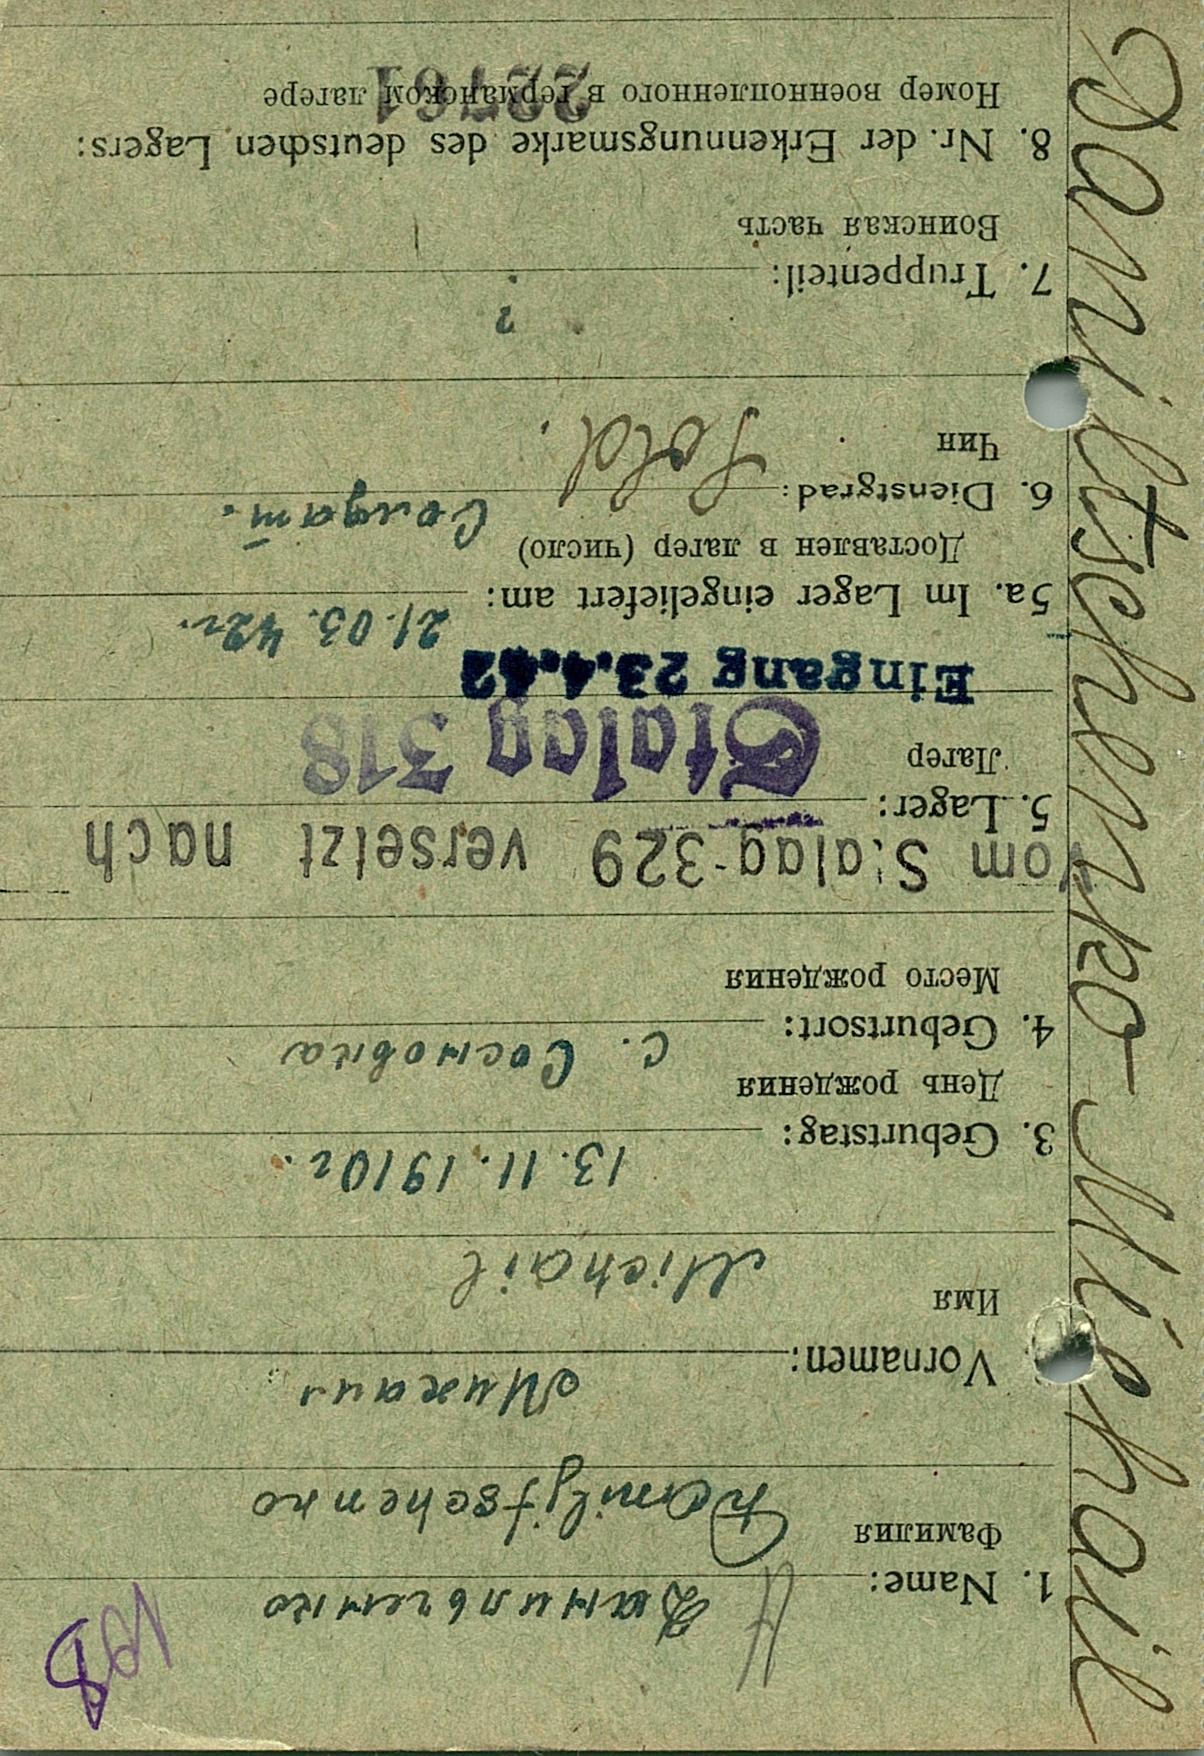 Daniltschenko Michail
1. Name: Данильченко
Фамилия Daniljtschenko
Vornamen: Михаил
Имя Michail
3. Geburtstag: 13.11.1910г.
День рождения
4. Geburtsort: с. Сосновка
Место рождения
Vom Stalag 329 versetzt nach
5. Lager: Stalag 318
Лагер
Eingang 23.4.42
5a. Im Lager eingeliefert am: 21.03.42г.
Доставлен в лагер (число)
6. Dienstgrad: Солдат.
Чин Sold.
7. Truppenteil: ?
Воинская часть
8. Nr. der Erkennungsmarke des deutschen Lagers:
Номер военнопленного в германском лагере